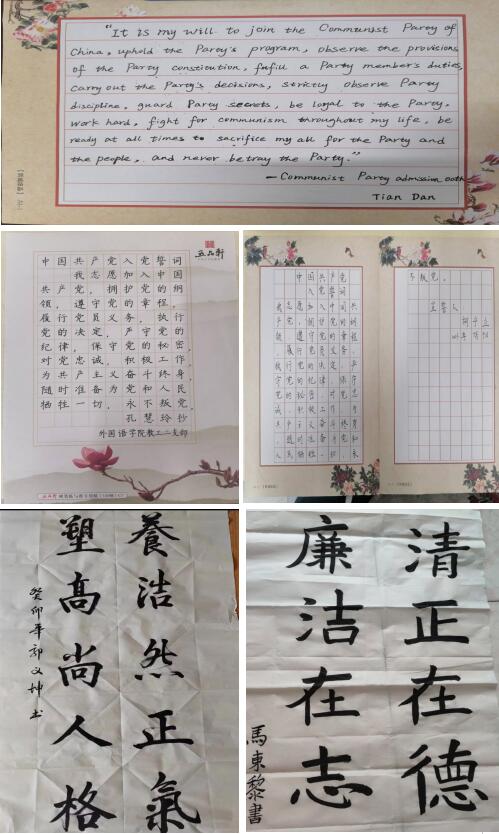 "It is my will to join the Communist Party of
China, uphold the Party's program, observe the provisions
of the Party constitution, fulfill a Party member's duties,
carry out the Party's decisions, strictly observe Party
discipline, guard Party secrets, be loyal to the Party,
work hard, fight for communism throughout my life, be
ready at all times to sacrifice my all for the Party and
the people, and never betray the Party."
— Communist Party admission oath
Tian Dan
五品轩
中国共产党入党誓词
我志愿加入中国
共产党，拥护党的纲
领，遵守党的章程，
履行党员义务，执行
党的决定，严守党的
纪律，保守党的秘密，
对党忠诚，积极工作，
为共产主义奋斗终身，
随时准备为党和人民
牺牲一切，永不叛党，
孔慧玲抄
外国语学院教工二支部
中国共产党
入党誓词
我志愿加入中国共
产党，拥护党的纲
领，遵守党的章程
，履行党员义务，
执行党的决定，严
守党的纪律，保守
党的秘密，对党忠
诚，积极工作，为
共产主义奋斗终身
，随时准备为党和
人民牺牲一切，永
不叛党。
宣誓人
養浩然正氣
塑高尚人格
癸卯年郭义坤书
清正在德
廉洁在志
馬東黎書